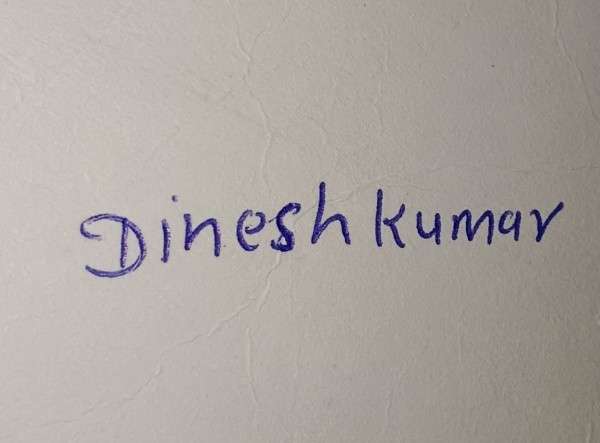 Dinesh kumar